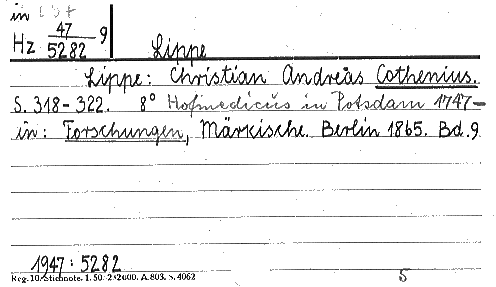 in
Hz 47/5282 9
Lippe
Lippe: Christian Andreas Cothenius.
S. 318-322. 8° Hofmedicus in Potsdam 1747-
in: Forschungen, Märkische. Berlin 1865. Bd. 9
1947: 5282
Reg. 10. Stichnote. 1. 50. 2°2000. A. 803. s. 4062
5